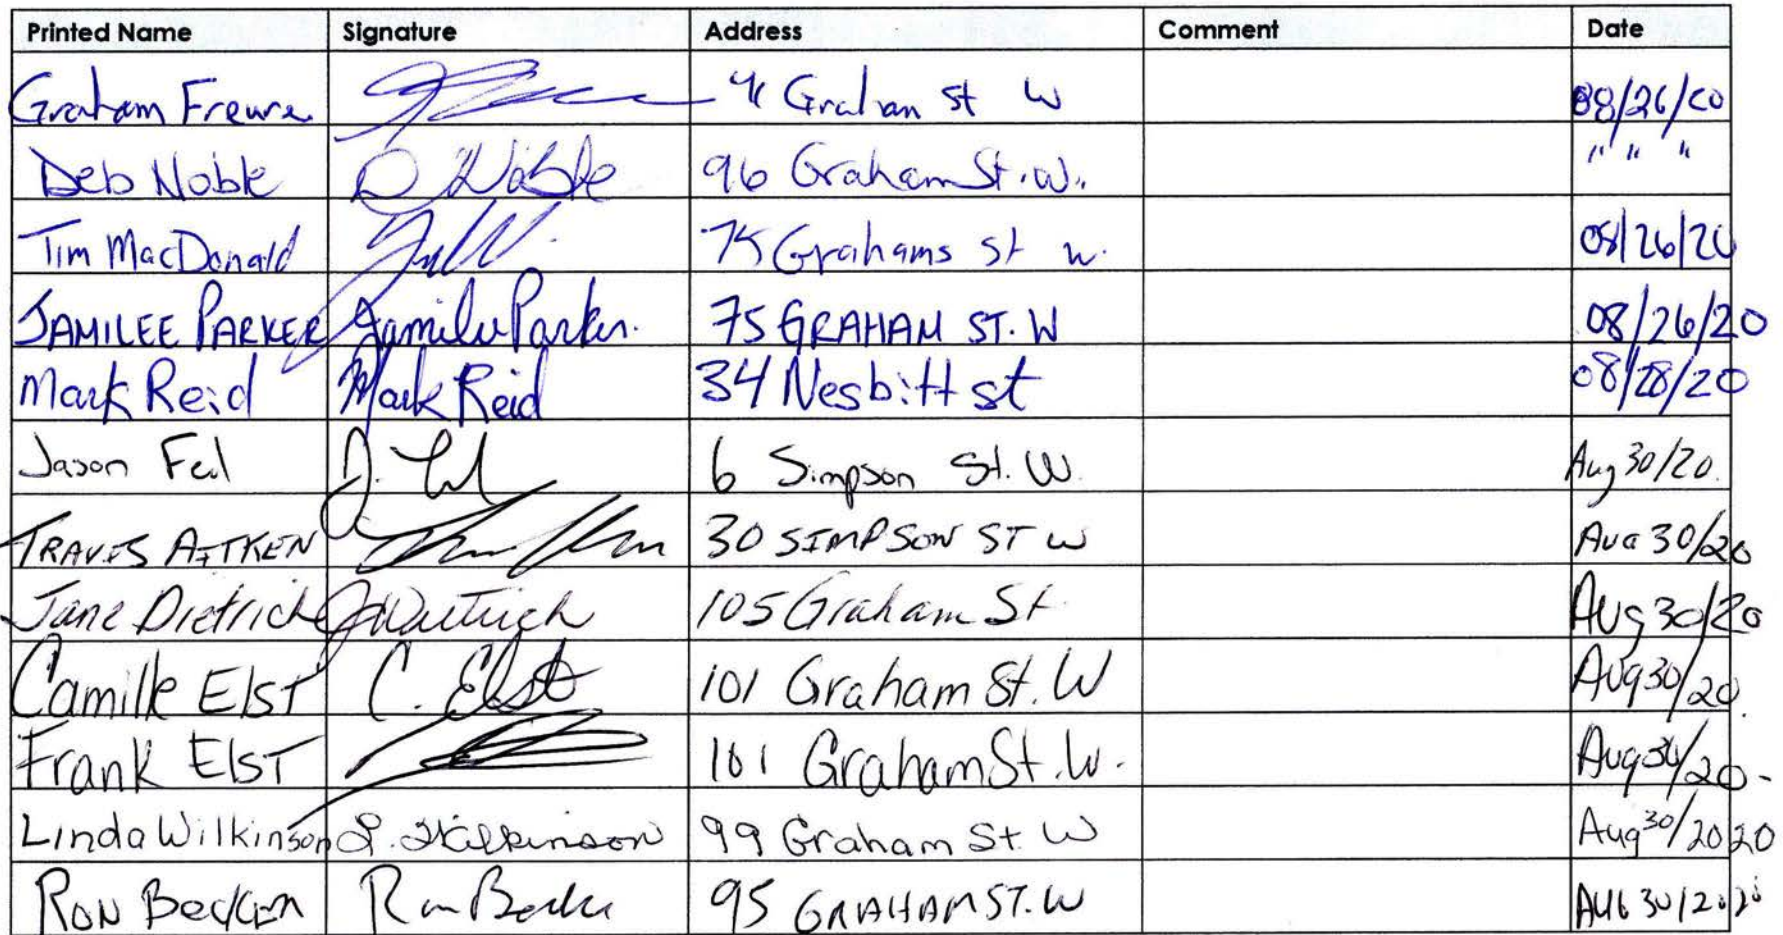 Printed Name Signature Address Comment Date
Graham Freure Graham St W 08/26/20
Deb Noble D Noble 96 Graham St. W. " " "
Tim MacDonald 75 Grahams St W. 08/26/20
JAMILEE PARKER Jamilee Parker. 75 GRAHAM ST. W 08/26/20
Mark Reid Mark Reid 34 Nesbitt st 08/28/20
Jason Feil J. 6 Simpson St. W. Aug 30/20.
TRAVIS AITKEN 30 SIMPSON ST W Aug 30/20
Jane Dietrich J Dietrich 105 Graham St Aug 30/20
Camille Elst C. Elst 101 Graham St. W Aug 30/20
Frank Elst 101 Graham St. W. Aug 30/20-
Linda Wilkinson L. Wilkinson 99 Graham St. W Aug 30/2020
RON Becker Ron Becker 95 GRAHAM ST. W AUG 30/2020